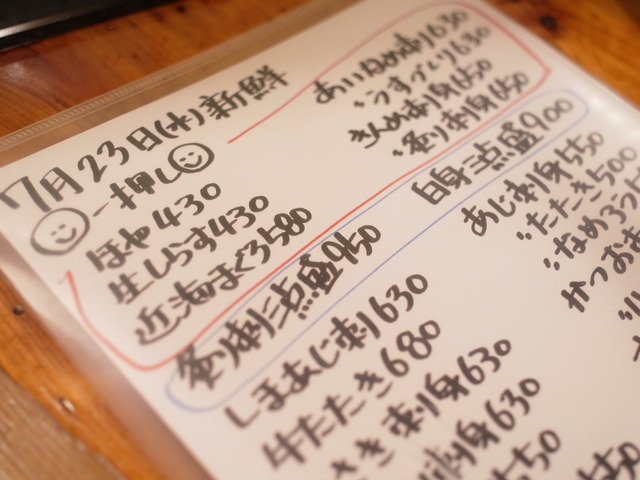 7月23日(水)新鮮
一押し
ほや430
生しらす430
近海まぐろ580
あいなめ刺630
〃うすづくり630
きんめ刺身650
〃炙り刺身650
炙り刺三点盛950
白身三点盛900
しまあじ刺630
牛たたき680
刺身630
刺身630
あじ刺身550
〃たたき500
〃なめろう
かつお